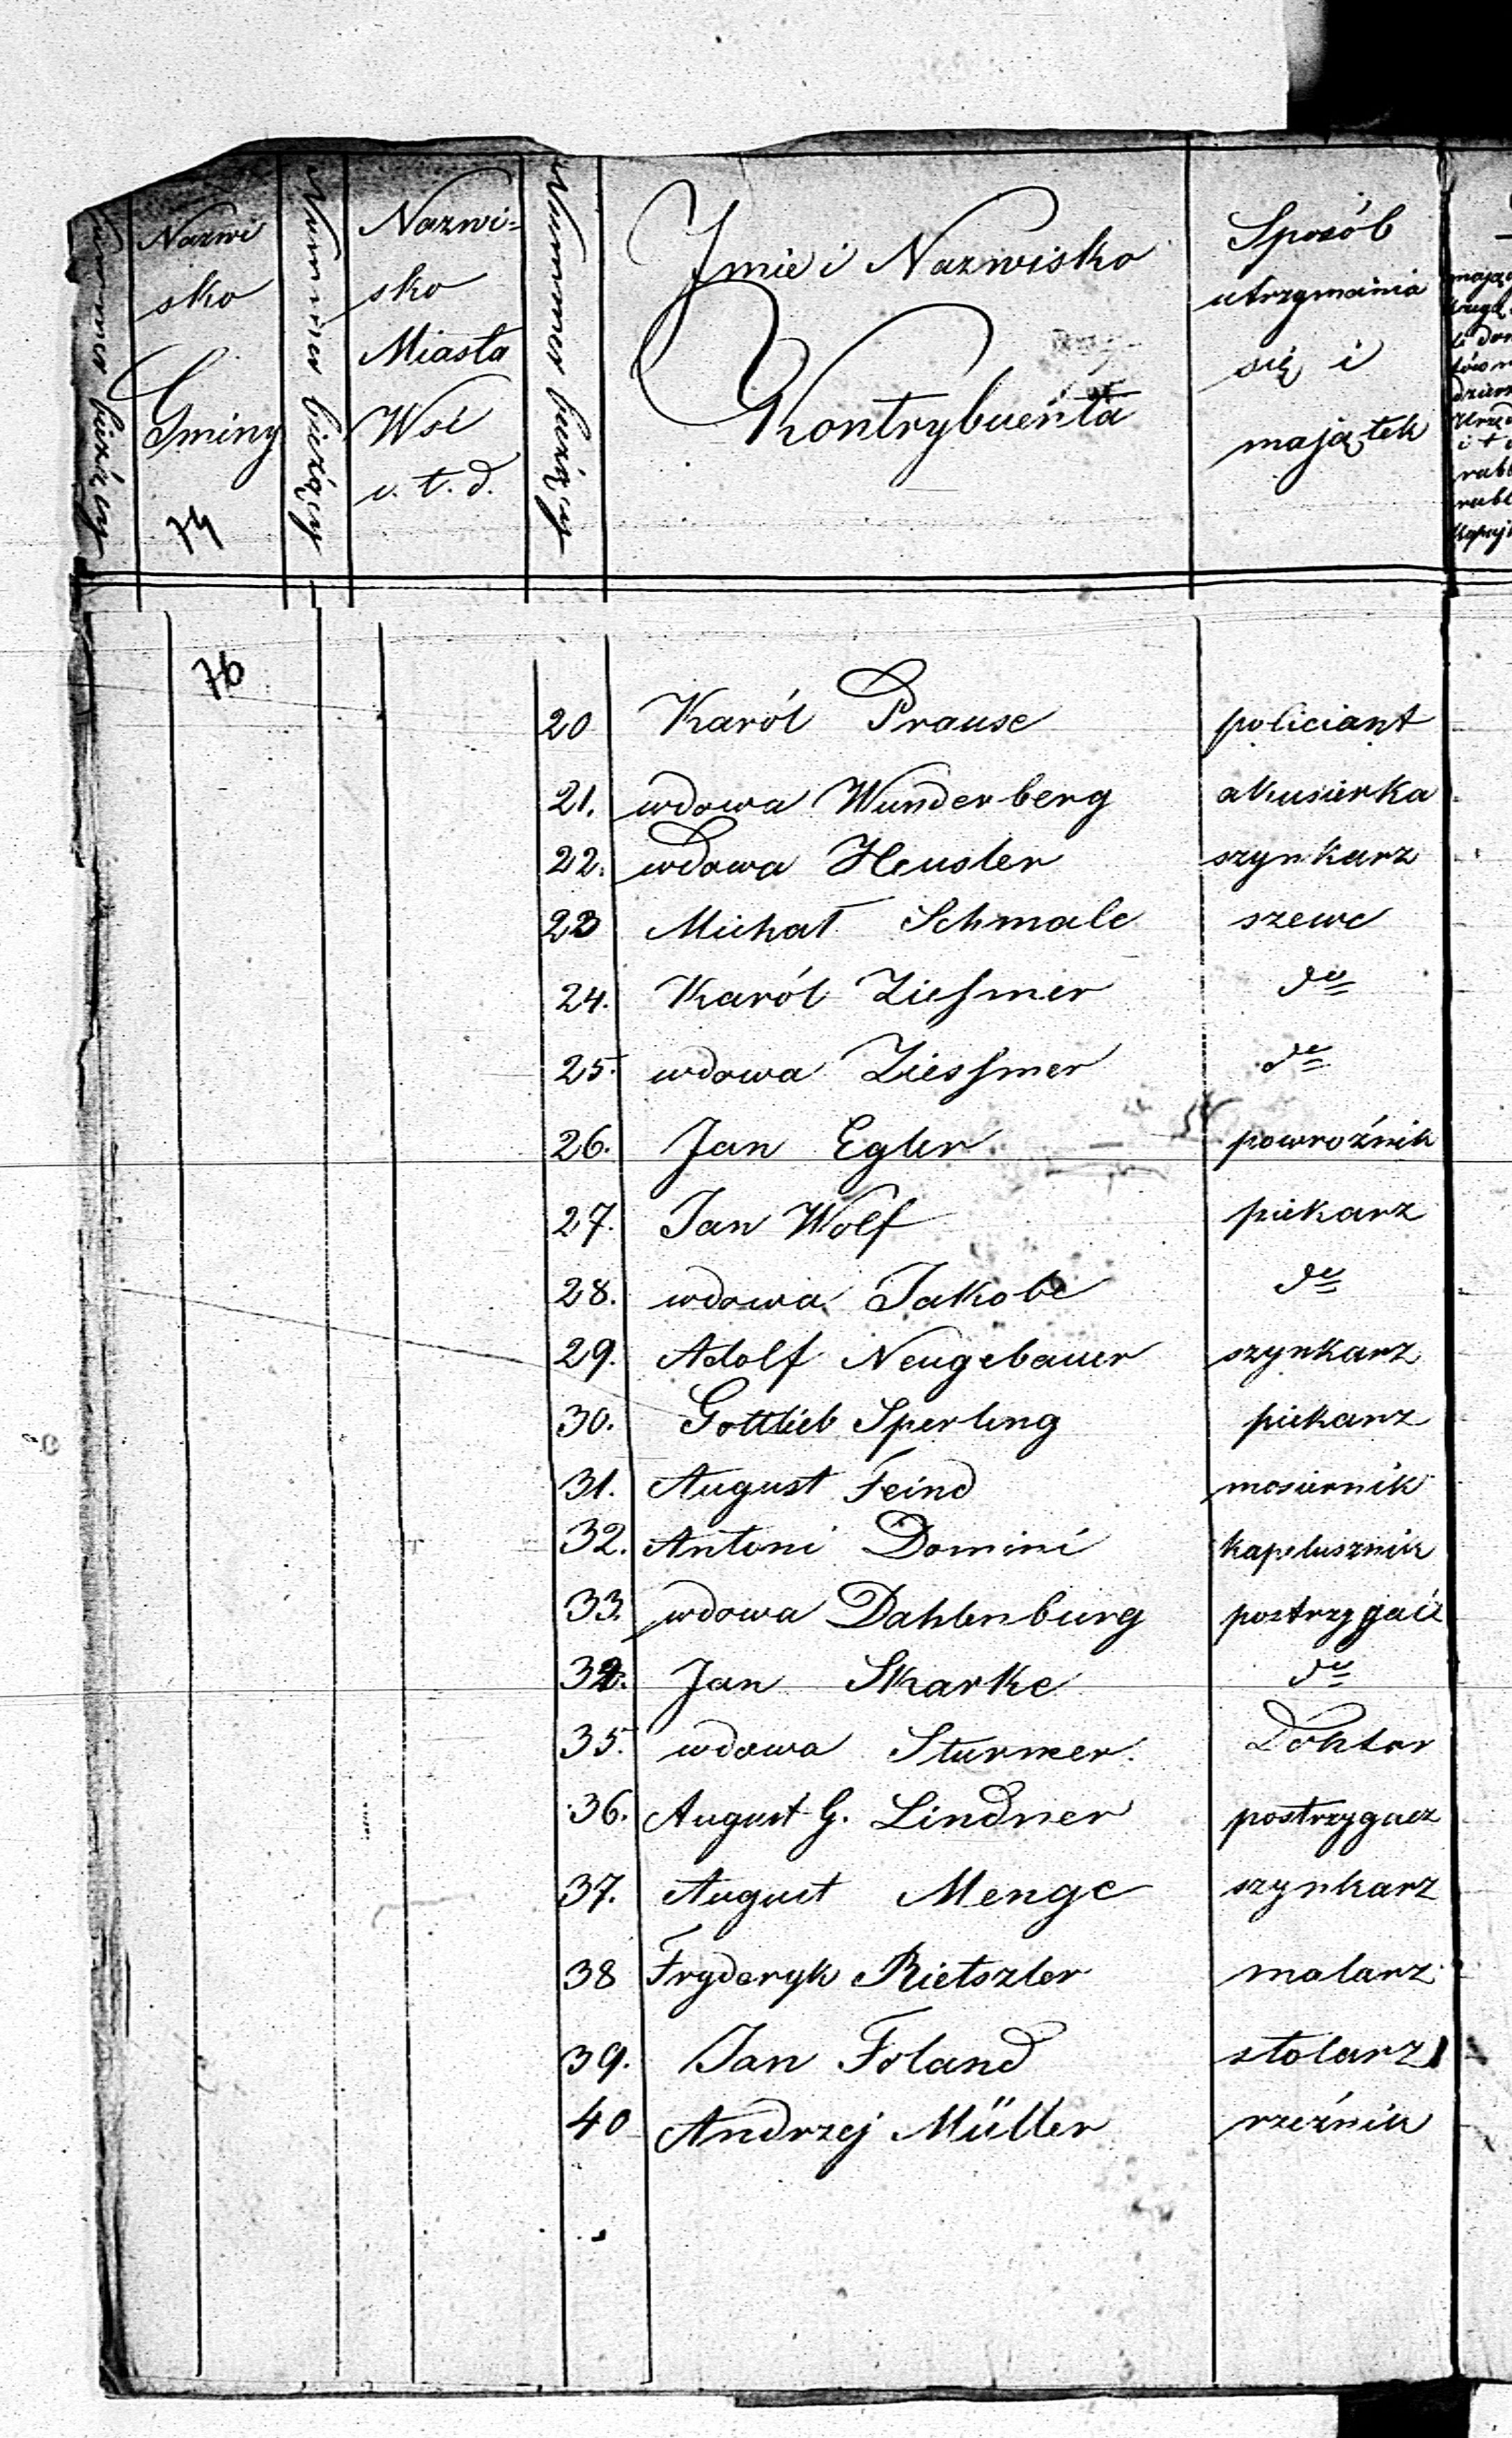 Nummer bieżący
Nazwi
sko
Gminy
74
Nummer bieżący
Nazwi=
sko
Miasta
Wsi
i. t. d.
Nummer bieżący
Imie i Nazwisko
Kontrybuenta
Sposób
utrzymania
się i
majątek
76
20 Karól Prause policiant
21. wdowa Wunderberg akusierka
22. wdowa Heusler szynkarz
23 Michał Schmale szewc
24. Karól Ziesmer do
25. wdowa Ziessmer do
26. Jan Egler powroźnik
27. Jan Wolf piekarz
28. wdowa Jakobe do
29. Adolf Neugebauer szynkarz
30. Gottlieb Sperling piekarz
31. August Feind mosiernik
32. Antoni Domini kapelusznik
33. wdowa Dahlenburg postrzygacz
34. Jan Skarke do
35. wdowa Sturmer Doktor
36. August G. Lindner postrzygacz
37. August Menge szynkarz
38 Fryderyk Rietszler malarz
39. Jan Foland stolarz
40 Andrzej Müller rzeźnik